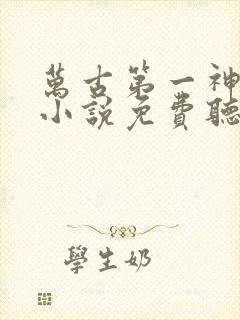 萬古第一神
小說免費聽
學生奶